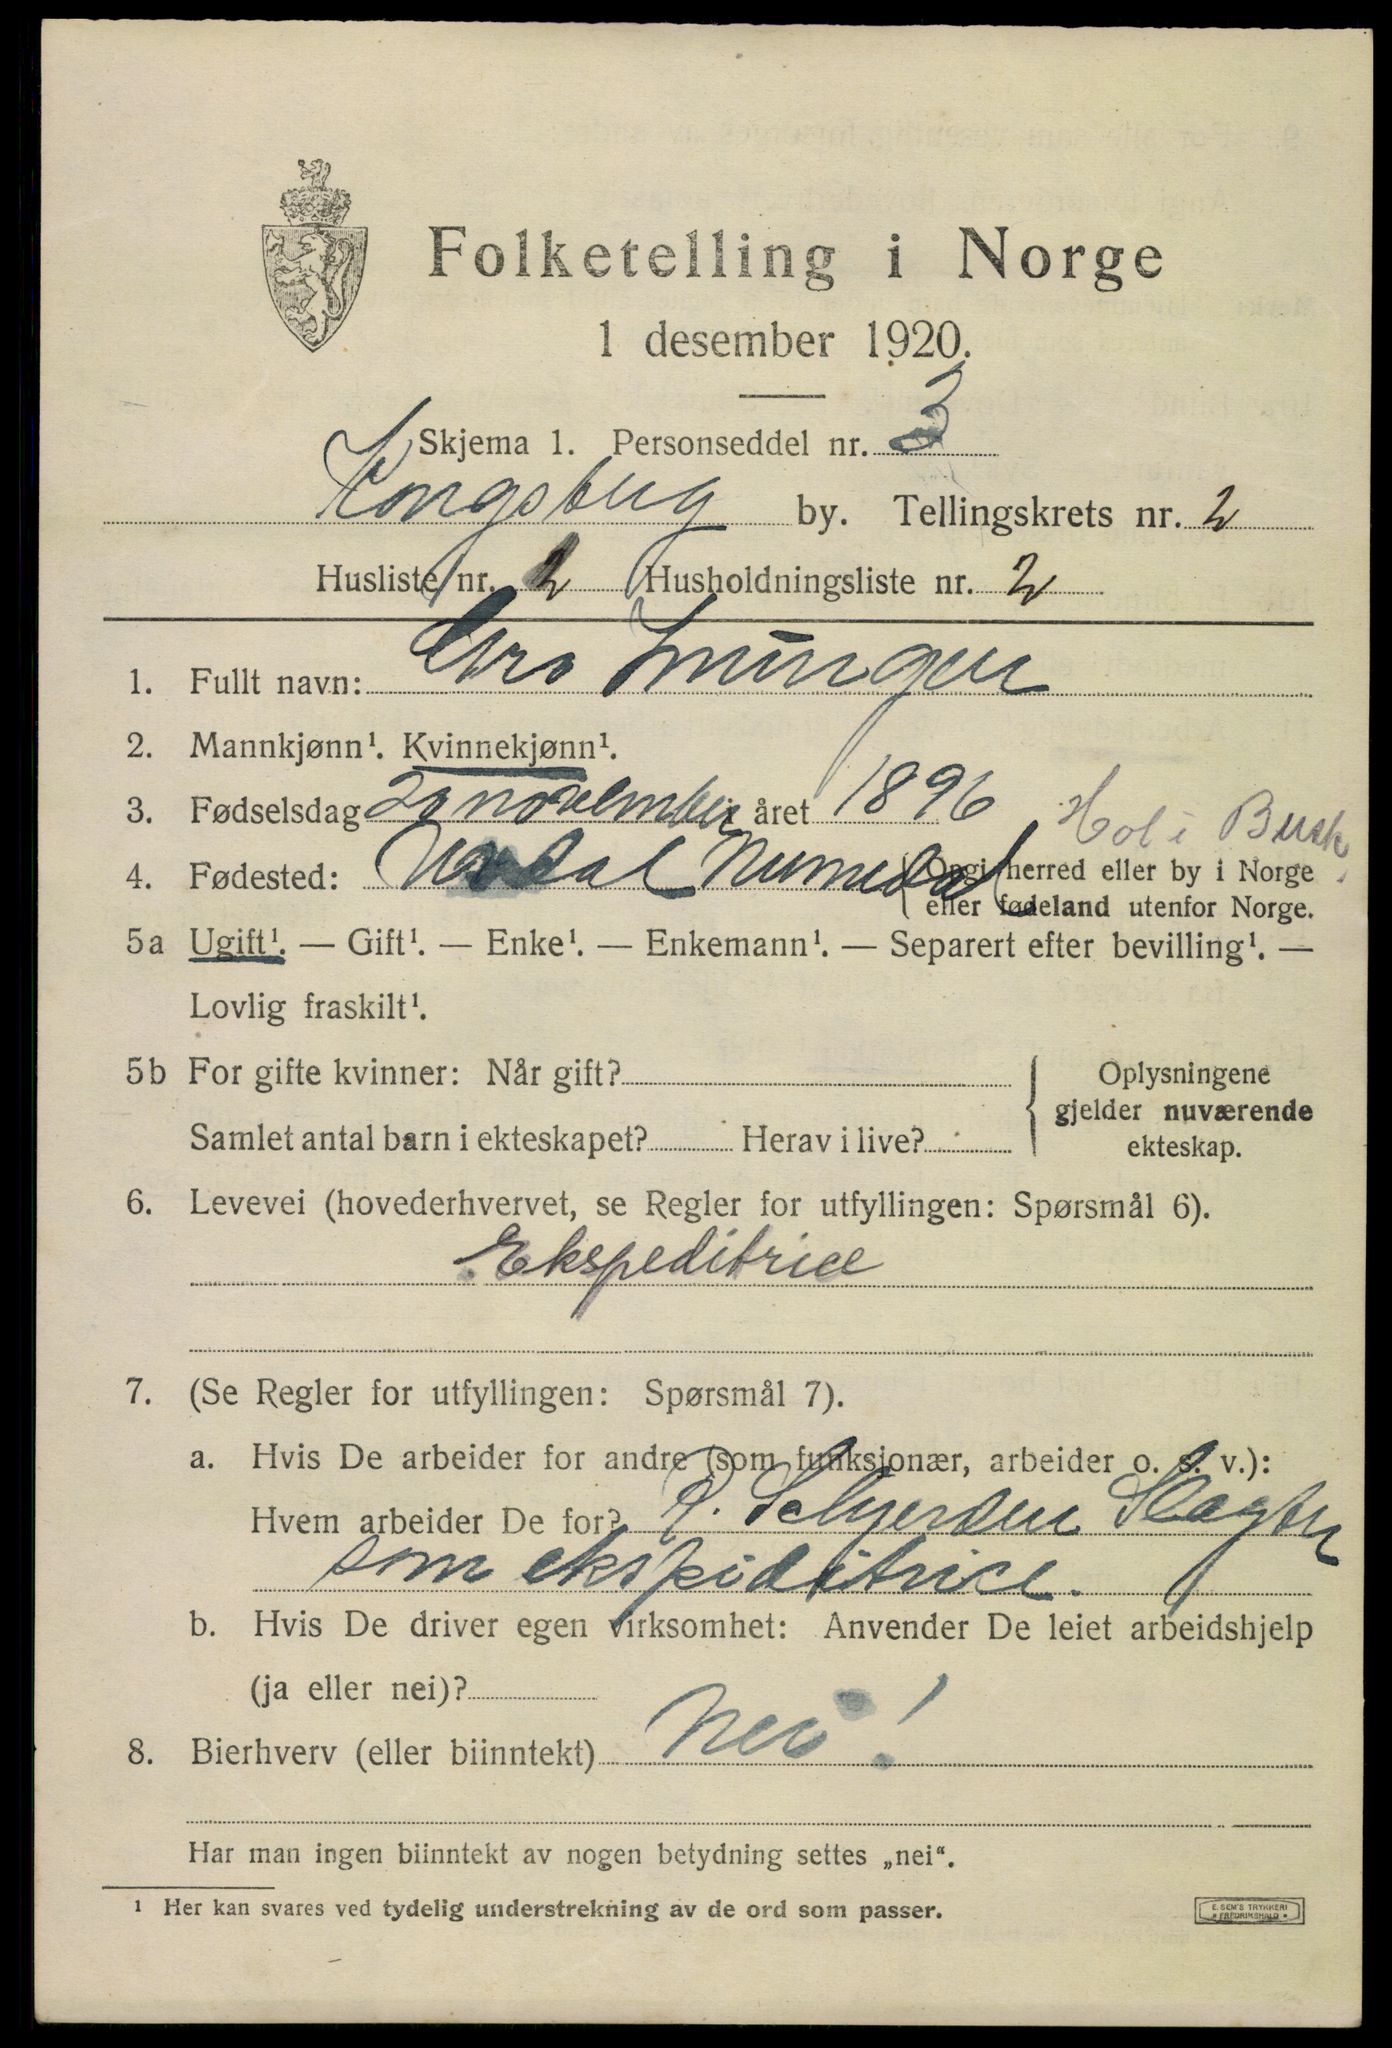 Folketelling i Norge
1 desember 1920.
Skjema 1. Personseddel nr. 3
Kongsberg by. Tellingskrets nr. 2
Husliste nr. 2 Husholdningsliste nr. 2
1. Fullt navn: Gro
2. Mannkjønn¹. Kvinnekjønn¹.
3. Fødselsdag november i året 1896
Hol i Busk.
4. Fødested: Uvdal Numedal
Opgi herred eller by i Norge
eller fødeland utenfor Norge.
5a Ugift¹. — Gift¹. — Enke¹. — Enkemann¹. — Separert efter bevilling¹. —
Lovlig fraskilt¹.
5b For gifte kvinner: Når gift?
Samlet antal barn i ekteskapet? Herav i live?
Oplysningene
gjelder nuværende
ekteskap.
6. Levevei (hovederhvervet, se Regler for utfyllingen: Spørsmål 6).
Ekspeditrice
7. (Se Regler for utfyllingen: Spørsmål 7).
a. Hvis De arbeider for andre (som funksjonær, arbeider o. s. v.):
Hvem arbeider De for? Slagter
som ekspeditrice.
b. Hvis De driver egen virksomhet: Anvender De leiet arbeidshjelp
(ja eller nei)?
8. Bierhverv (eller biinntekt) Nei!
Har man ingen biinntekt av nogen betydning settes „nei“.
¹ Her kan svares ved tydelig understrekning av de ord som passer.
E. SEM'S TRYKKERI
FREDRIKSHALD